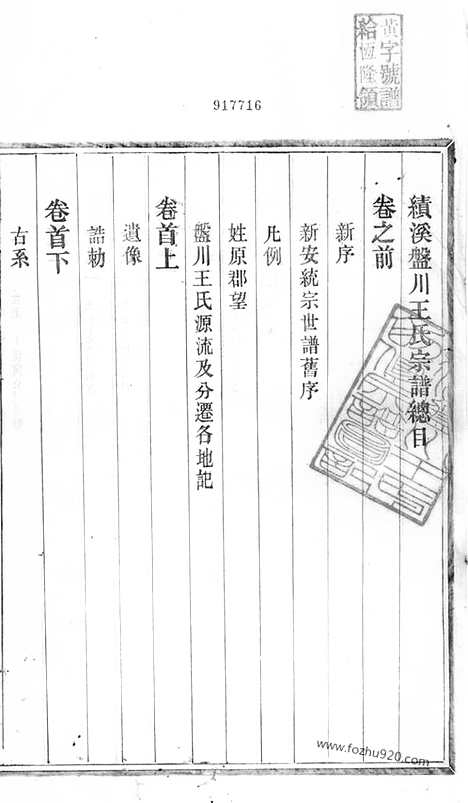 黃字號譜
給恆隆領
917716
績溪盤川王氏宗譜總目
卷之前
新序
新安統宗世譜舊序
凡例
姓原郡望
盤川王氏源流及分遷各地記
卷首上
遺像
誥勅
卷首下
古系
www.fozhu920.com